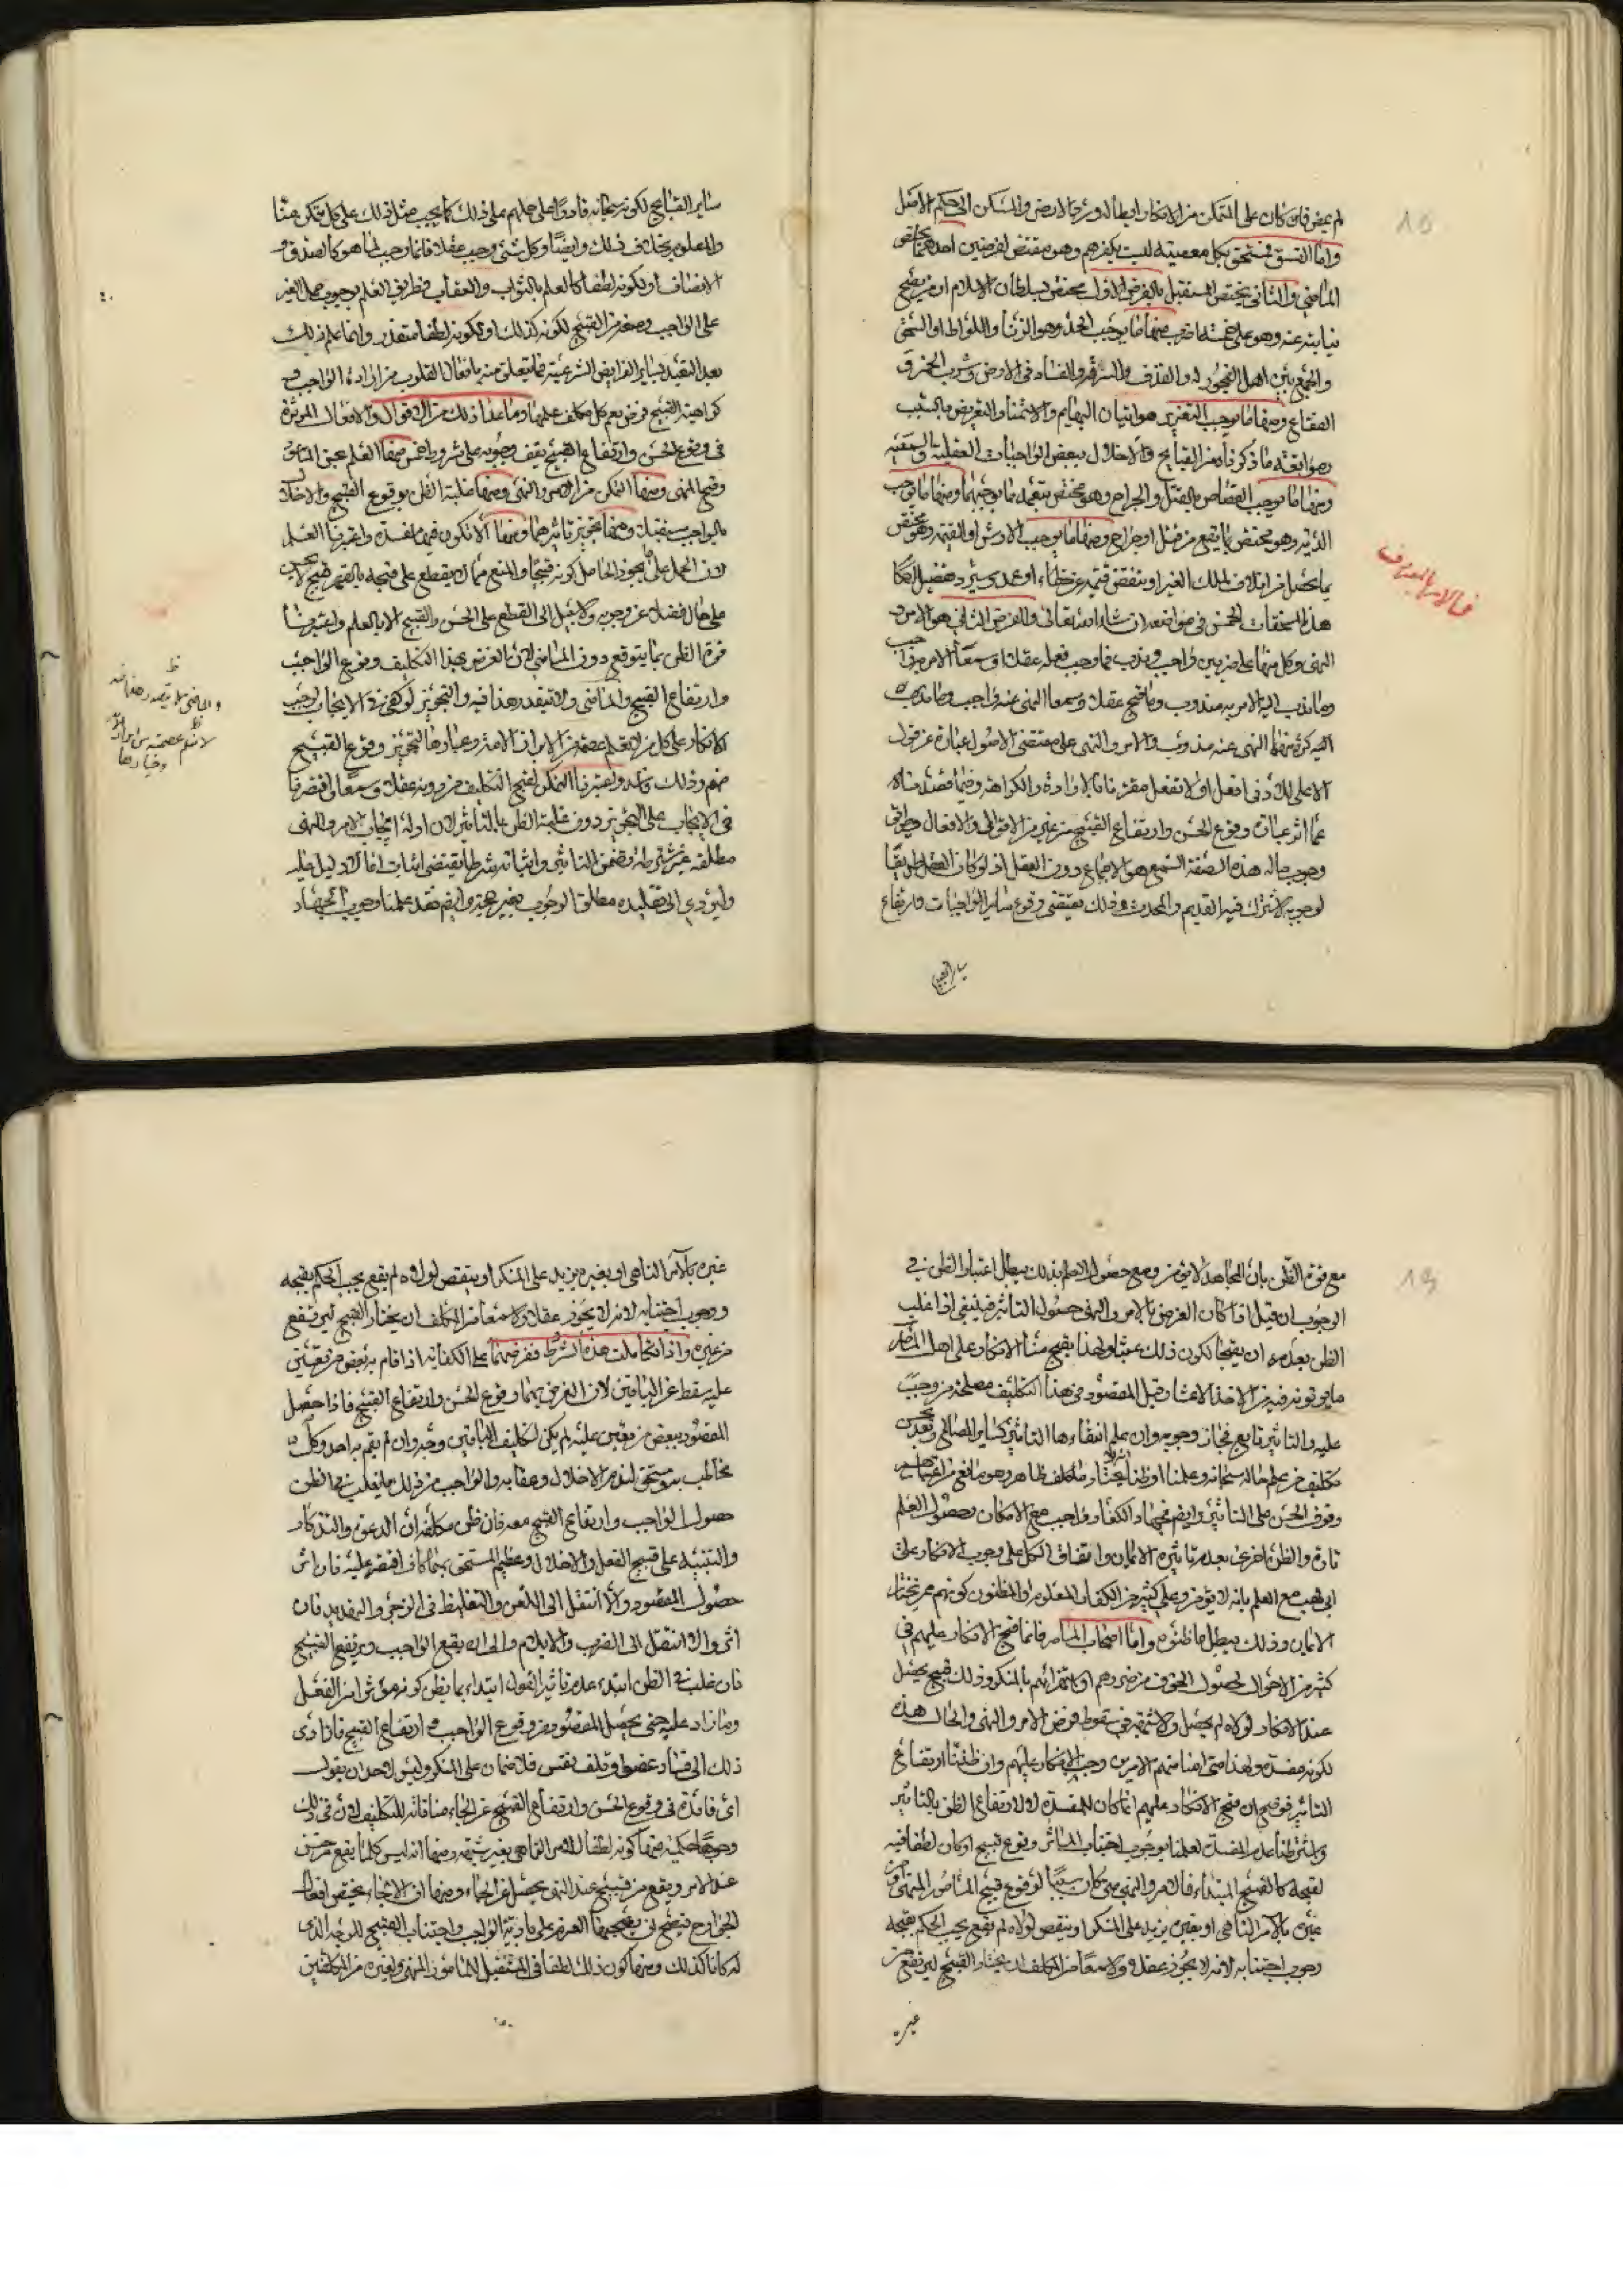 لم يمض فان كان على المتمكن من الانكار ابطاله ورد الارض والمسكن الى حكم الاصل
واما الفسق فمستحق بكل معصية ليست بكفر هم وهو مقتض لفرضين احدهما يختص
الماضي والثاني يختص المستقبل فالفرض الاول مختص بسلطان الاسلام او من يصح
نيابته عنه وهو على خمسة اضرب منها ما يوجب الحد وهو الزنا واللواط او السحق
والجمع بين اهل الفجور له والقذف والسرقة والفساد في الارض وشرب الخمر و
الفقاع ومنها ما يوجب التعزير هو اتيان البهايم والاستمناء والتعريض بالسب
ومواقعة ما ذكرناه من القبايح والاخلال ببعض الواجبات العقلية والسمعية
ومنها ما يوجب القصاص بالقتل والجراح وهو مختص بتعمد ما يوجبهما ومنها ما يوجب
الدية وهو مختص بما يقع من قتل او جراح ومنها ما يوجب الارش او القيمة وهو مختص
بما يحصل من اتلاف لملك الغير او بنقض قيمه عن خطاء او عمد وسيرد تفصيل احكام
هذه المستحقات الخمس في مواضعه ان شاء الله تعالى والفرض الثاني هو الامر و
النهي وكل منهما على ضربين واجب وندب فما وجب فعله عقلا او سمعا الامر به واجب
وما ندب اليه الامر به مندوب وما قبح عقلا وسمعا النهي عنه واجب وما ندب
اليه كره منه النهي عنه مندوب والامر والنهي على مقتضى الاصول عبارة عن قول
الاعلى للادنى افعل او لا تفعل مقترنا بالارادة والكراهة وفيما قصدناه
عما اثر عباره وقوع الحسن وارتفاع القبيح من غيره من الاقوال والافعال وطرق
وجوب ماله هذه الصفة السمع هو الاجماع دون العقل اذ لو كان العقل طريقا
لوجوبه لاشترك فيه القديم والمحدث وذلك يقتضي وقوع ساير الواجبات وارتفاع
ساير القبايح
في الامر بالمعروف
ساير القبايح لكونه سبحانه قادرا على حملهم على ذلك كما يجب مثل ذلك على كل متمكن منا
والمعلوم بخلاف ذلك وايضا وكل شيء وجب عقلا فانما وجب لما هو كالصدق و
الانصاف او لكونه لطفا كالعلم بالثواب والعقاب فطريق العلم بوجوب حمل الغير
على الواجب ومنعه من القبيح لكونه كذلك او لكونه لطفا متعذر وانما علم ذلك
بعد التعبد بساير الفرايض الشرعية فما يتعلق منه بافعال القلوب من ارادة الواجب و
كراهية القبيح فرض يعم كل مكلف علمها وما عدا ذلك من الاقوال والافعال المؤثرة
في وقوع الحسن وارتفاع القبيح يقف وجوبه على شروط خمس منها العلم بحسن المأمور
وقبح المنهي ومنها التمكن من الامر والنهي ومنها غلبة الظن بوقوع القبيح والاخلال
بالواجب مستقبلا ومنها تجويز تاثيرهما ومنها الا تكون فيهما مفسدة واعتبرنا العلم
لان الحمل على ما يجوز الحامل كونه قبيحا والمنع مما لا يقطع على قبحه بالقهر قبيح لا يحسن
على حال فضلا عن وجوبه ولا سبيل الى القطع على الحسن والقبيح الا بالعلم واعتبرنا
قوة الظن بما يتوقع دون الماضي لان الغرض بهذا التكليف وقوع الواجب
وارتفاع القبيح والماضي ولا يتقدر هذا فيه والتجويز لو كفى في الايجاب لوجب
الانكار على كل من لم يعلم عصمته من الابرار الامة وعبادها لتجويز وقوع القبيح
منهم وذلك فاسد واعتبرنا التمكن لقبح التكليف من دونه عقلا وسمعا واقتصرنا
في الايجاب على التجويز دون غلبة الظن بالتاثير لان ادلة ايجاب الامر والنهي
مطلقة غير مشترطة بظن التاثير واثباته شرطا يقتضي اثبات ما لا دليل عليه
وليؤدي الى تقييده مطلق الوجوب بغير حجة وايضم فقد علمنا وجوب الجهاد
مع قوة الظن بان المجاهد لا يؤمن ومع حصول العلم بذلك يبطل اعتبار الظن في
الوجوب ان قيل اذا كان الغرض بالامر والنهي حصول التاثير فينبغي اذا غلب
الظن بعدمه ان يقبحا لكون ذلك عبثا ولهذا يقبح منا الانكار على اهل الماصر
ما يؤتونه فيه من الاخذ الاعشار قيل المقصود في هذا التكليف مصلحة من وجب
عليه والتاثير تابع فجاز وجوبه وان علم انتفاءها التاثير كساير المصالح وبعد يحسن
تكليف من علم حاله سبحانه وعلمنا او ظننا
وقوف الحسن على التاثير وايضم فجهاد الكفار واجب مع الامكان وحصول العلم
تارة والظن اخرى بعدم تاثيره الايمان واتفاق الكل على وجوب الانكار على
ابي لهب مع العلم بانه لا يؤمن وعلى كثير من الكفار المعلوم او المظنون كونهم ممن يختار
الايمان وذلك يبطل ما ظنوه واما اصحاب الماصر فانما قبح الانكار عليهم في
كثير من الاحوال لحصول الخوف من ضررهم او لاغترائهم بالمنكر وذلك قبيح يحصل
عند الانكار لولاه لم يحصل ولا شبهة في سقوط فرض الامر والنهي والحال هذه
لكونه مفسدة ولهذا متى امنا منهم الامرين وجب الانكار عليهم وان ظننا ارتفاع
التاثير فوضح ان قبح الانكار عليهم انما كان للمفسدة لا لارتفاع الظن بالتاثير
واشترطنا عدم المفسدة لعلمنا بوجوب اجتناب الماثر وقوع قبيح او كان لطفا فيه
لقبحه كالقبيح المبتداء فالامر والنهي متى كان سببا لوقوع قبيح المامور المنهي و
غيره بالامر الناهي او بغيره يزيد على المنكر او ينقص لولاه لم يقع يجب الحكم بقبحه
وجوب اجتنابه لانه لا يجوز عقلا ولا سمعا من المكلف ان يختار القبيح ليرتفع من
غيره
غيره بالآمر الناهي او بغيره يزيد على المنكر او ينقص لولاه لم يقع يجب الحكم بقبحه
ووجوب اجتنابه لانه لا يجوز عقلا ولا سمعا من المكلف ان يختار القبيح ليرتفع
من غيره واذا تكاملت هذه الشروط ففرضهما على الكفاية اذا قام به بعض من تعين
عليه سقط عن الباقين لان الغرض بهما وقوع الحسن وارتفاع القبيح فاذا حصل
المقصود ببعض من تعين عليه لم يكن لتكليف الباقين وجه وان لم يقم به احد وكل
مخاطب به ومستحق لذم الاخلال وعقابه والواجب من ذلك ما يغلب في الظن
حصول الواجب وارتفاع القبيح معه فان ظن مكلفه ان الدعوة والتذكار
والتنبيه على قبيح الفعل والاخلال وعظيم المستحق بهما كاف اقتصر عليه فان اثر
حصول المقصود والا انتقل الى اللعن والتغليظ في الزجر والتهديد فان
اثر والا انتقل الى الضرب والايلام والى ان يقع الواجب ويرتفع القبيح
فان غلب في الظن ابتداء عدم تاثير القول ابتداء بما يظن كونه مؤثرا من الفعل
وما زاد عليه حتى يحصل المقصود من وقوع الواجب وارتفاع القبيح فاذا ادى
ذلك الى فساد عضو او تلف نفس فلا ضمان على المنكر وليس لاحد ان يقول
اي فائدة في وقوع الحسن وارتفاع القبيح عن الجاء منافاته للتكليف لان في ذلك
وجوها حكمية منها كونه لطفا للآمر الناهي بغير شبهة ومنها انه ليس كلما يقع من حسن
عند الامر ويقع من قبيح عند النهي يحصل عن الجاء ومنها ان الالجاء يختص افعال
الجوارح فيصح ان يصحبهما العزم على تادية الواجب واجتناب القبيح للوجه الذي
له كانا كذلك ومنها كون ذلك لطفا في المستقبل للمامور المنهي ولغيره من المكلفين